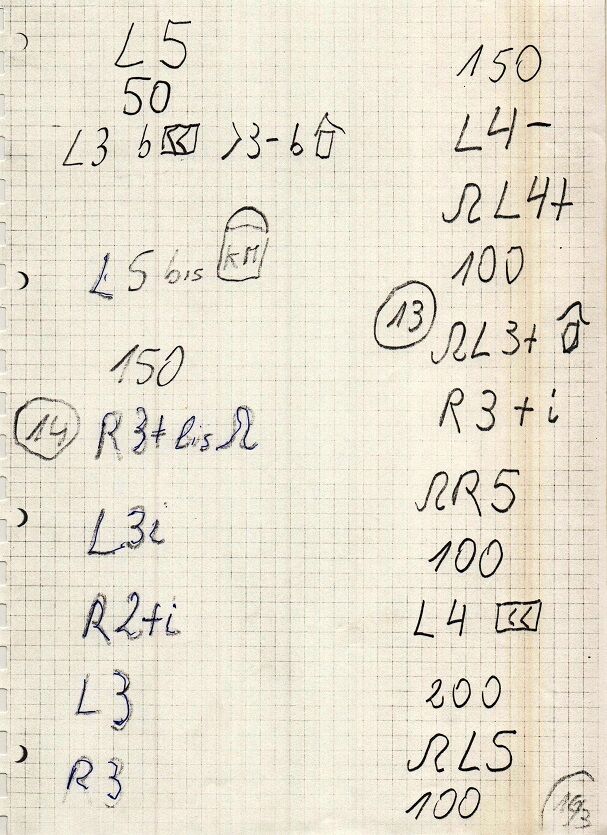 L5
50
L3 b << >3- b
L5 bis KM
150
14 R3+ bis Ω
L3i
R2+i
L3
R3
150
L4-
ΩL4+
100
13 ΩL3+
R3+i
ΩR5
100
L4 <<
200
ΩL5
100